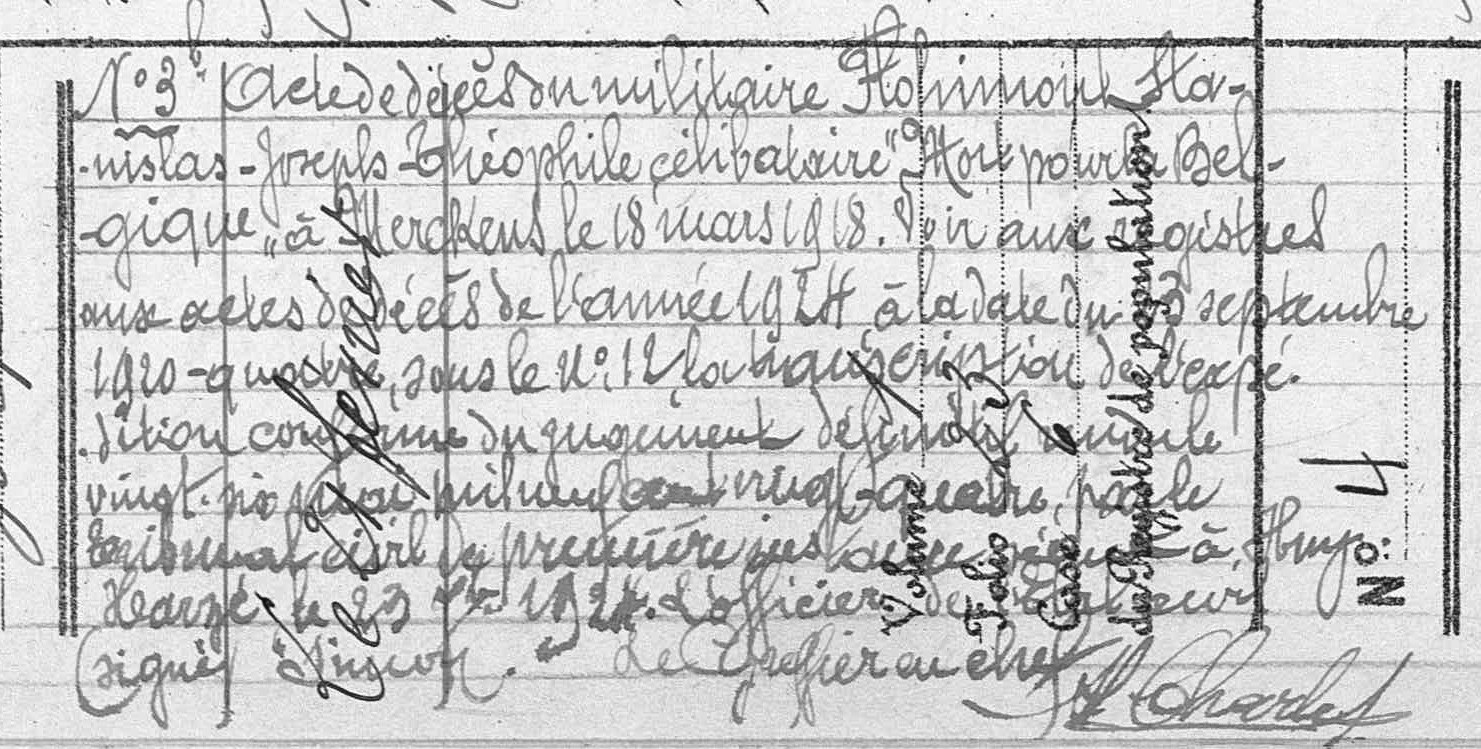 N° 3b Acte de décès du militaire Flohimont Sta-
-nislas-Joseph-Théophile, célibataire "Mort pour la Bel-
-gique" à Merckens le 18 mars 1918. Voir aux registres
aux actes de décès de l'année 1924, à la date du 23 septembre
1920-quatre, sous le N°. 12, la transcription de l'expé-
dition conforme du jugement définitif rendu le
vingt-six mai mil neuf cent vingt-quatre, par le
tribunal civil de première instance séant à Huy.
Harzé, le 23 1924. L'officier de l'Etat civil
(signé) "Simon". Le Greffier en chef
Charles
Volume
Folio
Case 6
du Registre de population
N°: 4